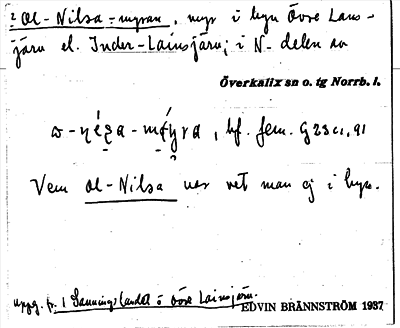 2 Ol-Nilsa-myran, myr i byn Övre Lans-
järv el. Inder-Lainsjärv; i N-delen av
Överkalix sn o. tg Norrb. l.
bf. fem.
Vem Ol-Nilsa var vet man ej i byn.
uppg. fr. 1 Sanningsland i Övre Lainsjärv.
EDVIN BRÄNNSTRÖM 1937